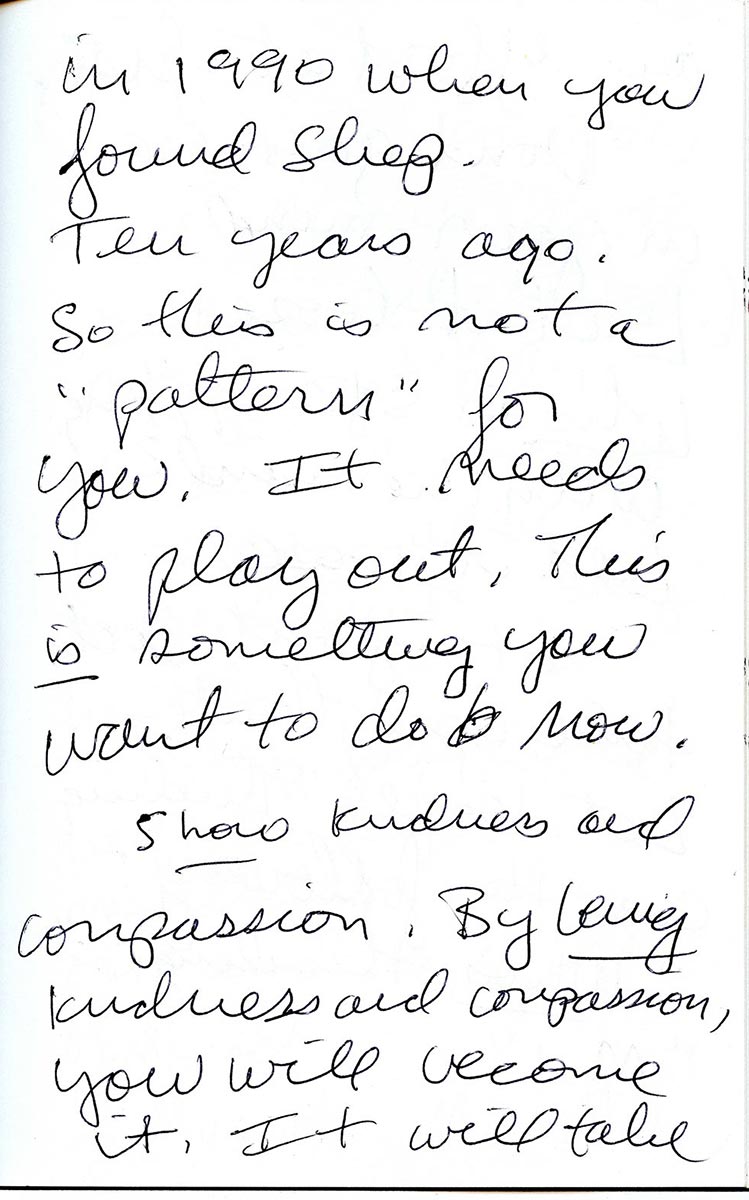 in 1990 when you
found Shep.
Ten years ago.
So this is not a
"pattern" for
you. It needs
to play out. This
is something you
want to do now.
Show kindness and
compassion. By being
kindness and compassion,
you will become
it. It will take